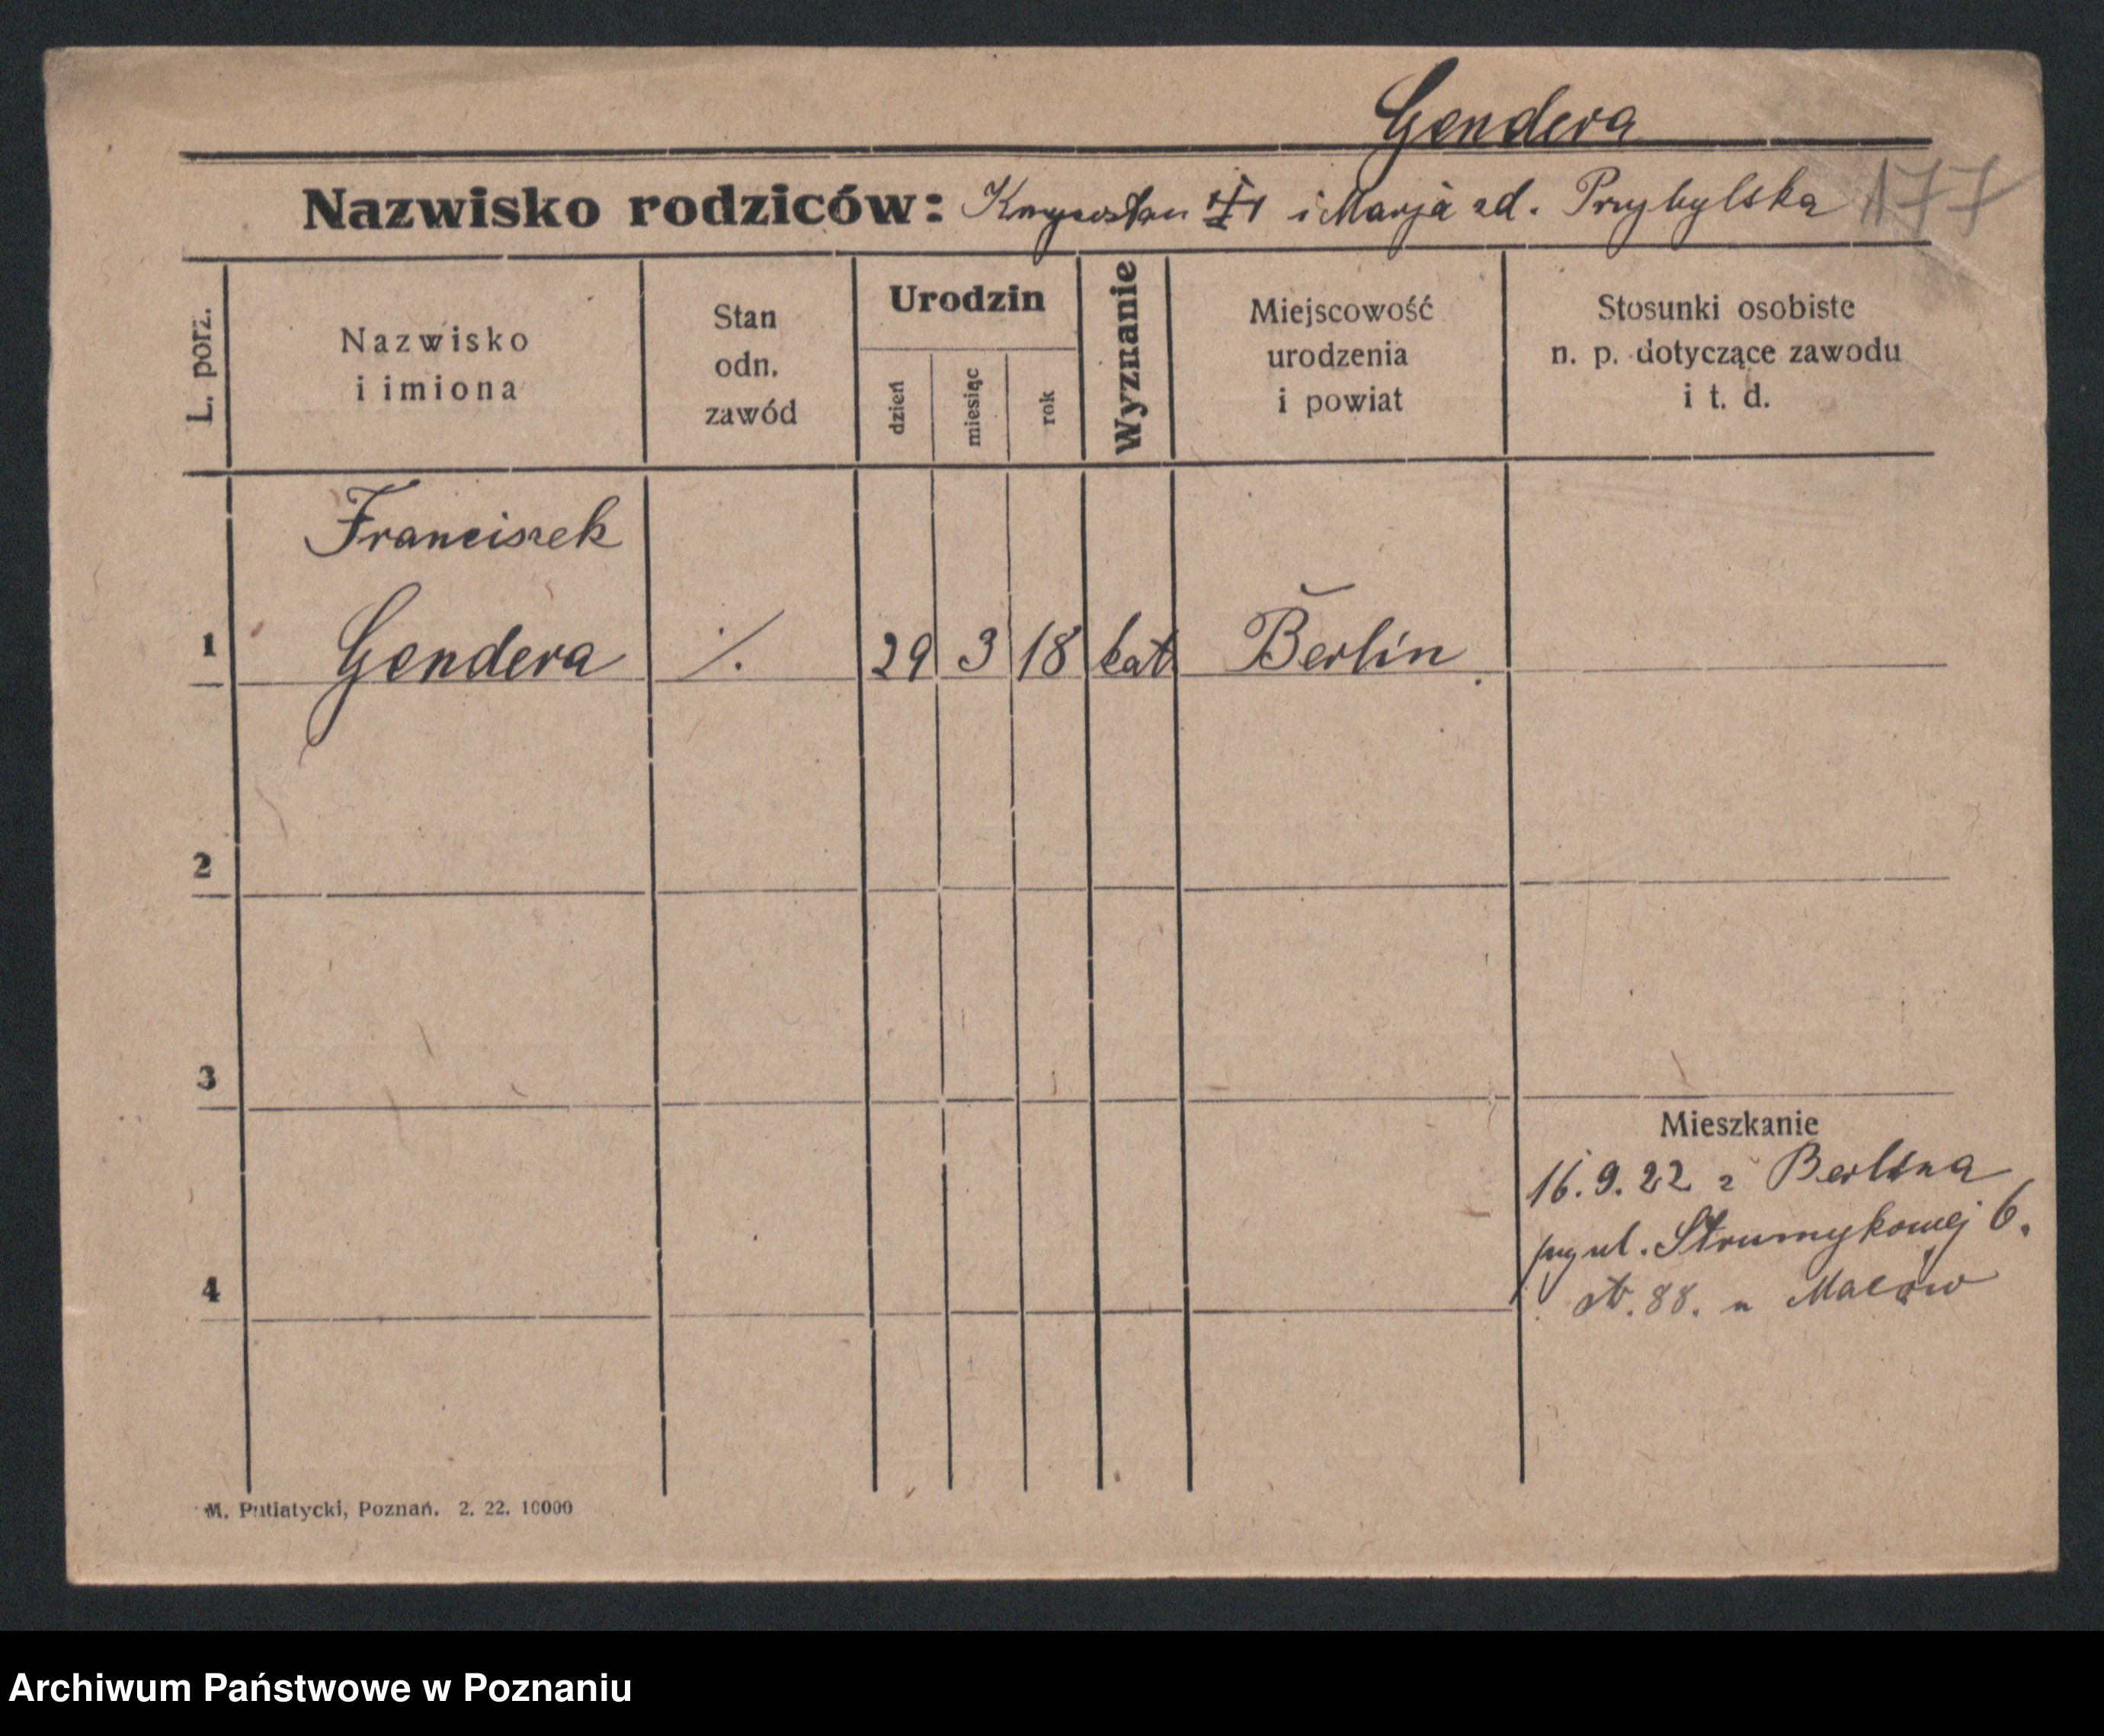 Gendera
Nazwisko rodziców: i Marja zd. Przybylska 177
L. porz.
Nazwisko
i imiona
Stan
odn.
zawód
Urodzin
dzień
miesiąc
rok
Wyznanie
Miejscowość
urodzenia
i powiat
Stosunki osobiste
n. p. dotyczące zawodu
i t. d.
Franciszek
1 Gendera ./. 29 3 18 kat Berlin
2
3
Mieszkanie
16. 9. 22 z Berlina
przy ul. Strumykowej 6.
4 88. u
M. Putiatycki, Poznań. 2. 22. 10000
Archiwum Państwowe w Poznaniu